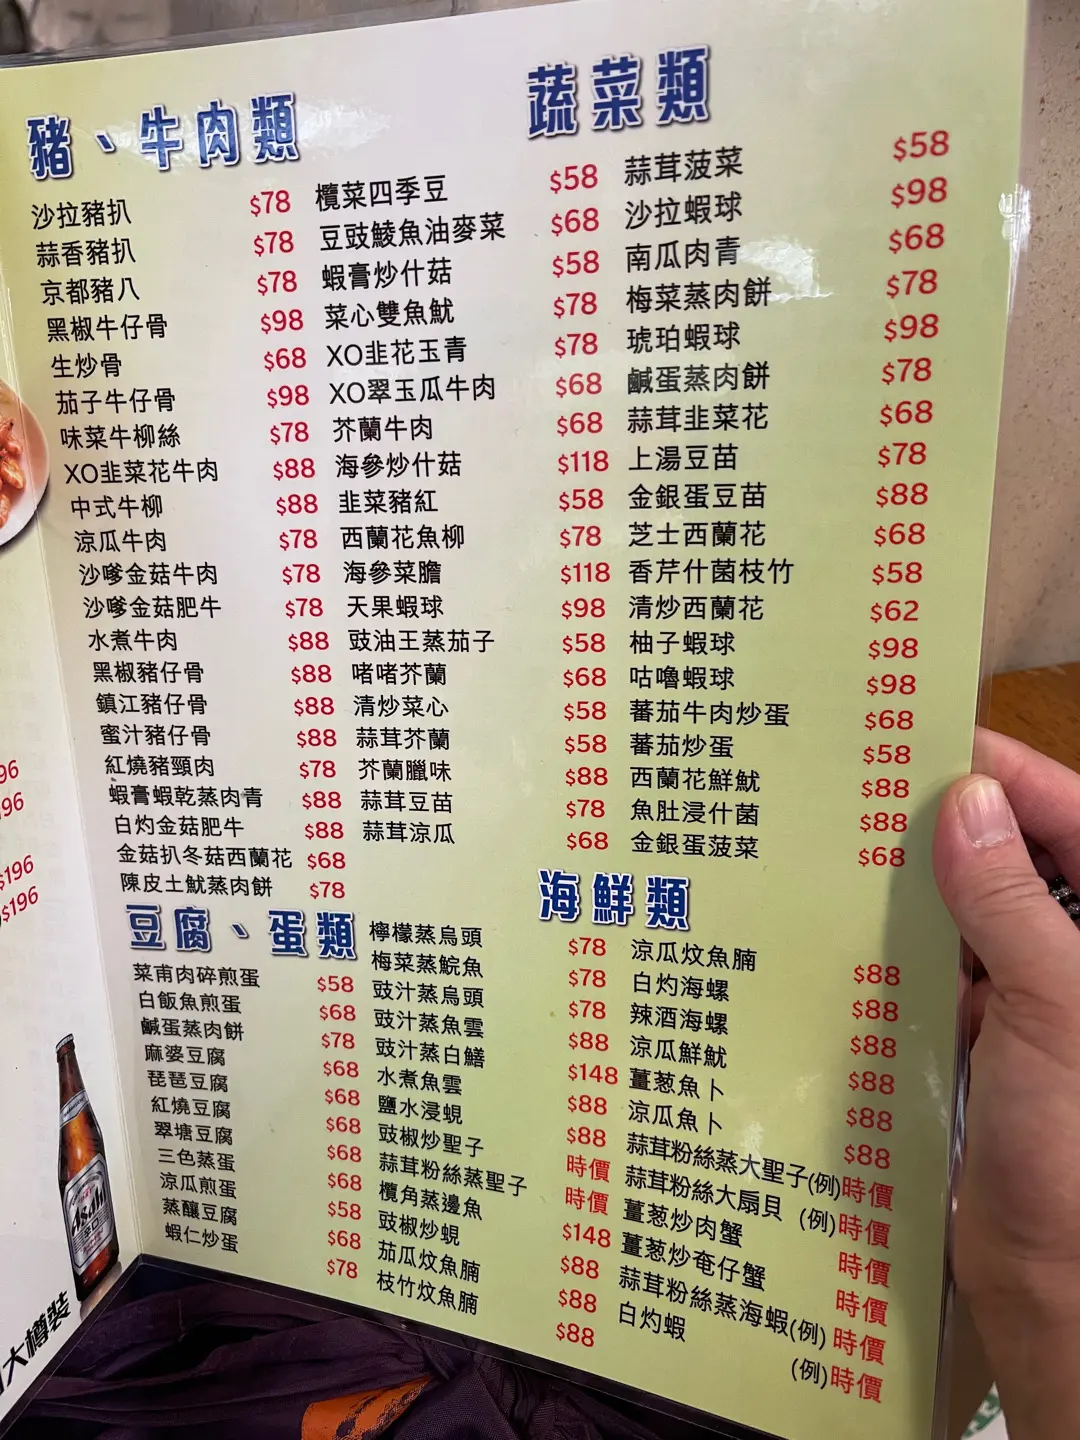 豬、牛肉類
沙拉豬扒 $78
蒜香豬扒 $78
京都豬八 $78
黑椒牛仔骨 $98
生炒骨 $68
茄子牛仔骨 $98
味菜牛柳絲 $78
XO韭菜花牛肉 $88
中式牛柳 $88
涼瓜牛肉 $78
沙嗲金菇牛肉 $78
沙嗲金菇肥牛 $78
水煮牛肉 $88
黑椒豬仔骨 $88
鎮江豬仔骨 $88
蜜汁豬仔骨 $88
紅燒豬頸肉 $78
蝦膏蝦乾蒸肉青 $88
白灼金菇肥牛 $88
金菇扒冬菇西蘭花 $68
陳皮土魷蒸肉餅 $78
蔬菜類
欖菜四季豆 $58
豆豉鯪魚油麥菜 $68
蝦膏炒什菇 $58
菜心雙魚魷 $78
XO韭花玉青 $78
XO翠玉瓜牛肉 $68
芥蘭牛肉 $68
海參炒什菇 $118
韭菜豬紅 $58
西蘭花魚柳 $78
海參菜膽 $118
天果蝦球 $98
豉油王蒸茄子 $58
啫啫芥蘭 $68
清炒菜心 $58
蒜茸芥蘭 $58
芥蘭臘味 $88
蒜茸豆苗 $78
蒜茸涼瓜 $68
蒜茸菠菜 $58
沙拉蝦球 $98
南瓜肉青 $68
梅菜蒸肉餅 $78
琥珀蝦球 $98
鹹蛋蒸肉餅 $78
蒜茸韭菜花 $68
上湯豆苗 $78
金銀蛋豆苗 $88
芝士西蘭花 $68
香芹什菌枝竹 $58
清炒西蘭花 $62
柚子蝦球 $98
咕嚕蝦球 $98
蕃茄牛肉炒蛋 $68
蕃茄炒蛋 $58
西蘭花鮮魷 $88
魚肚浸什菌 $88
金銀蛋菠菜 $68
豆腐、蛋類
菜甫肉碎煎蛋 $58
白飯魚煎蛋 $68
鹹蛋蒸肉餅 $78
麻婆豆腐 $68
琵琶豆腐 $68
紅燒豆腐 $68
翠塘豆腐 $68
三色蒸蛋 $68
涼瓜煎蛋 $58
蒸釀豆腐 $68
蝦仁炒蛋 $78
海鮮類
檸檬蒸烏頭 $78
梅菜蒸鯇魚 $78
豉汁蒸烏頭 $78
豉汁蒸魚雲 $88
豉汁蒸白鱔 $148
水煮魚雲 $88
鹽水浸蜆 $88
豉椒炒聖子 時價
蒜茸粉絲蒸聖子 時價
欖角蒸邊魚 $148
豉椒炒蜆 $88
茄瓜炆魚腩 $88
枝竹炆魚腩 $88
涼瓜炆魚腩 $88
白灼海螺 $88
辣酒海螺 $88
涼瓜鮮魷 $88
薑葱魚卜 $88
涼瓜魚卜 $88
蒜茸粉絲蒸大聖子(例) 時價
蒜茸粉絲大扇貝 (例) 時價
薑葱炒肉蟹 時價
薑葱炒奄仔蟹 時價
蒜茸粉絲蒸海蝦(例) 時價
白灼蝦 (例) 時價
96
96
$196
$196
Asahi
大樽裝